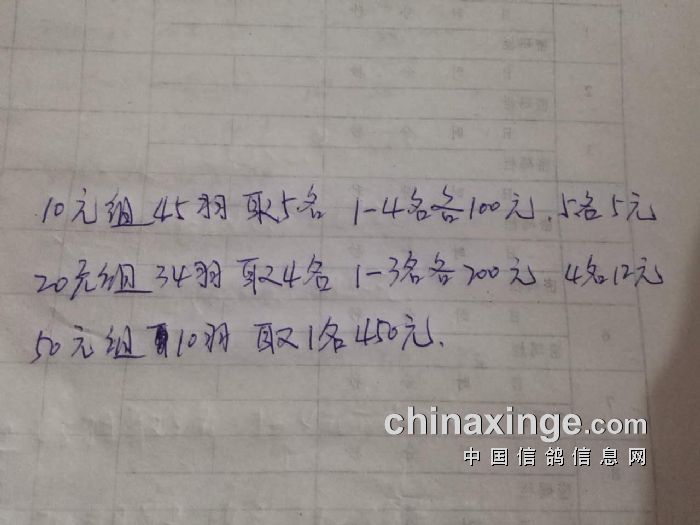 10元组45羽 取5名 1-4名各100元.5名5元
20元组34羽 取4名 1-3名各200元 4名12元
50元组10羽 取1名450元.
chinaxinge.com
中国信鸽信息网